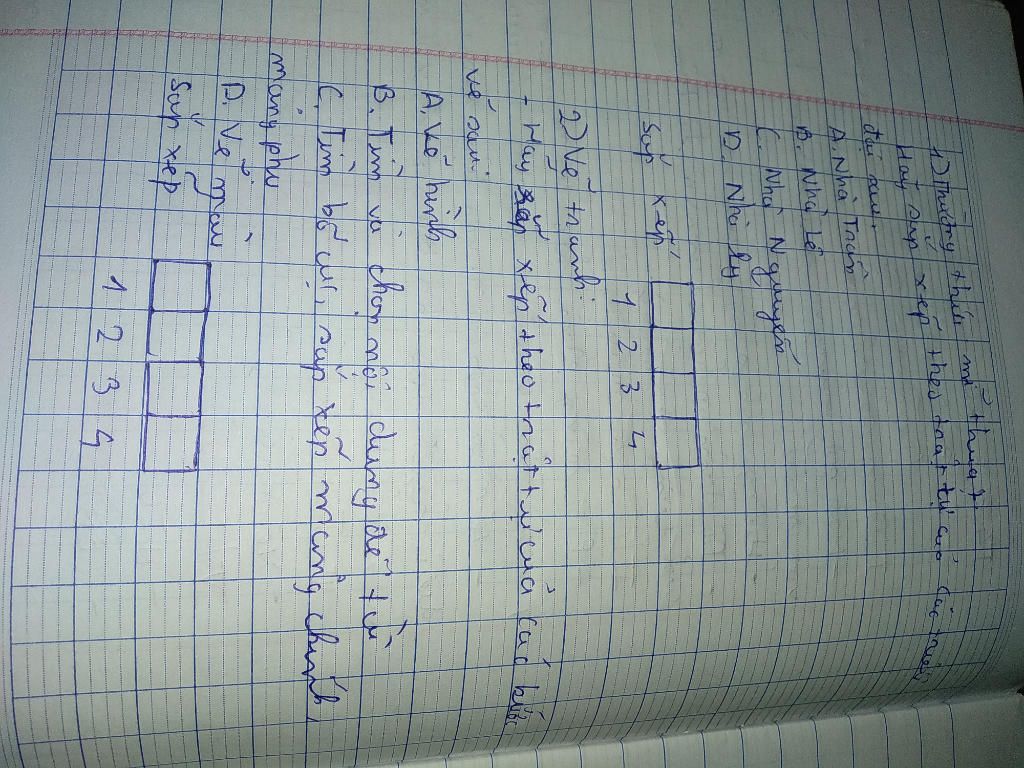 1) Thường thức mĩ thuật:
Hãy sắp xếp theo trật tự của các triều
đại sau:
A. Nhà Trần
B. Nhà Lê
C. Nhà Nguyễn
D. Nhà Lý
Sắp xếp
1 2 3 4
2) Vẽ tranh:
- Hãy sắp xếp theo trật tự của các bước
vẽ sau:
A. Vẽ hình
B. Tìm và chọn nội dung đề tài
C. Tìm bố cục, sắp xếp mảng chính,
mảng phụ
D. Vẽ màu
Sắp xếp
1 2 3 4